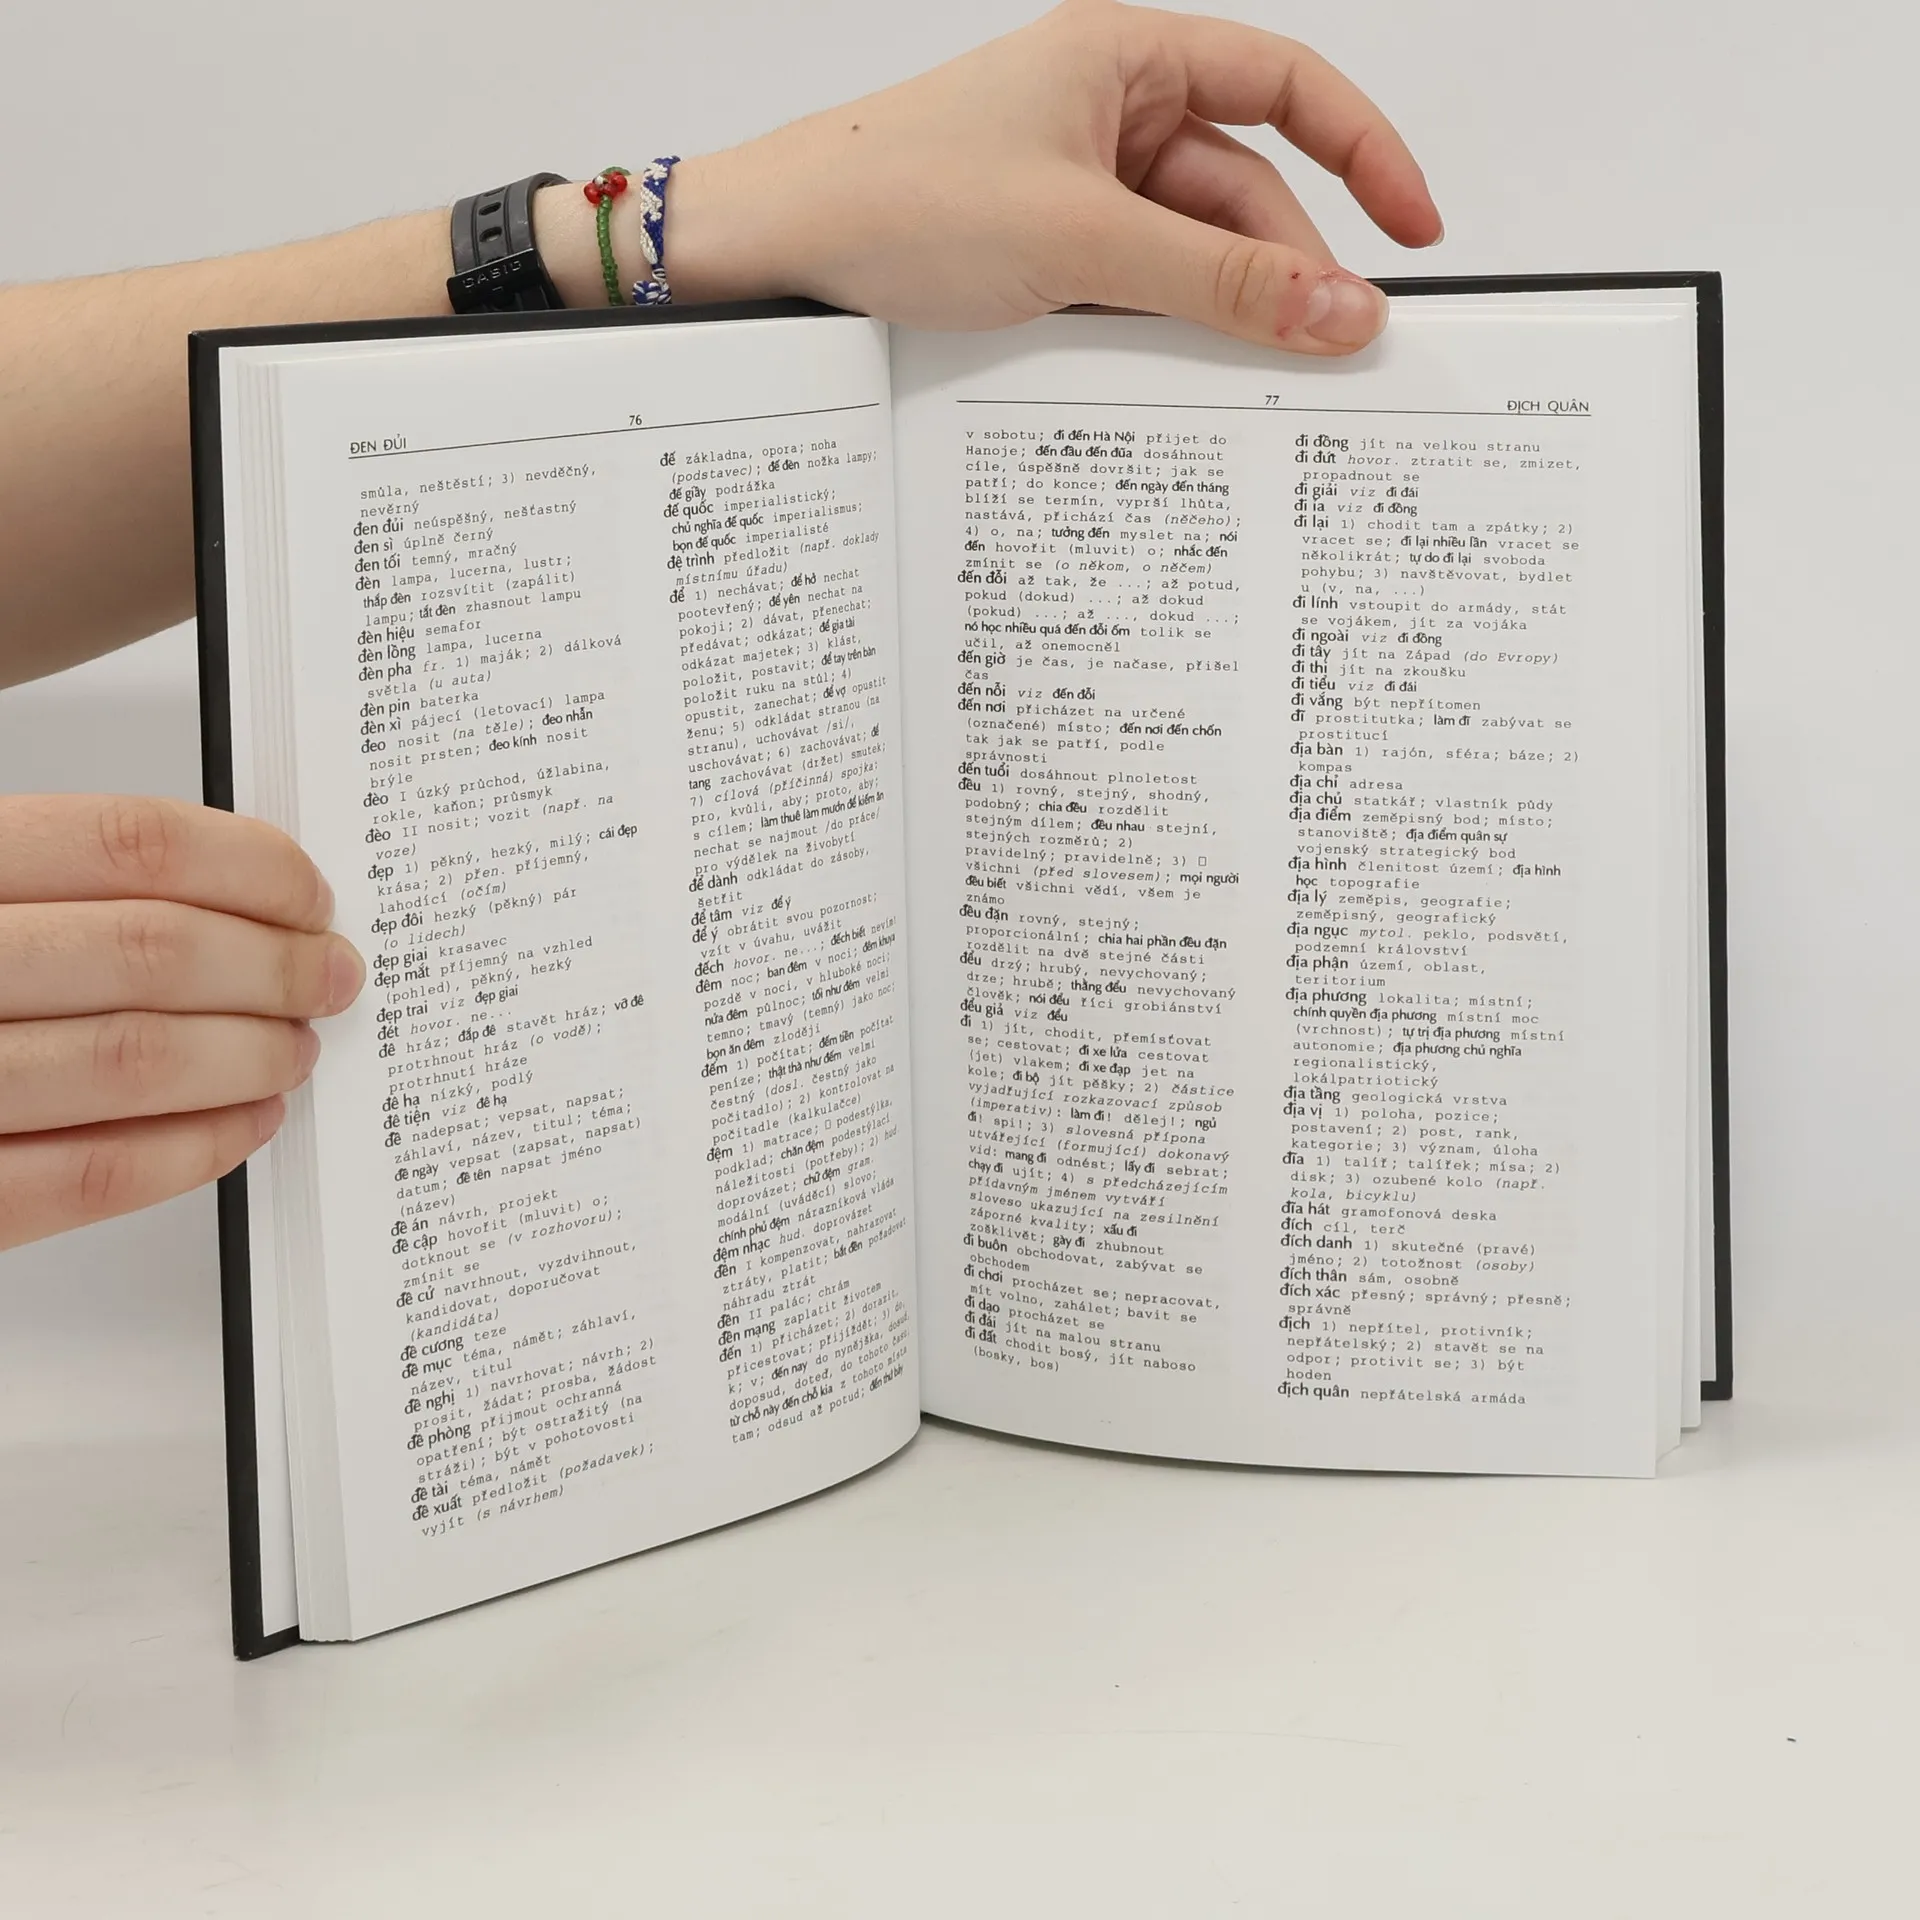 CASIO
ĐEN ĐỦI
76
smůla, neštěstí; 3) nevděčný,
nevěrný
đen đủi neúspěšný, nešťastný
đen sì úplně černý
đen tối temný, mračný
đèn lampa, lucerna, lustr;
thắp đèn rozsvítit (zapálit)
lampu; tắt đèn zhasnout lampu
đèn hiệu semafor
đèn lồng lampa, lucerna
đèn pha fr. 1) maják; 2) dálková
světla (u auta)
đèn pin baterka
đèn xì pájecí (letovací) lampa
đeo nosit (na těle); đeo nhẫn
nosit prsten; đeo kính nosit
brýle
đèo I úzký průchod, úžlabina,
rokle, kaňon; průsmyk
đèo II nosit; vozit (např. na
voze)
đẹp 1) pěkný, hezký, milý; cái đẹp
krása; 2) přen. příjemný,
lahodící (očím)
đẹp đôi hezký (pěkný) pár
(o lidech)
đẹp giai krasavec
đẹp mắt příjemný na vzhled
(pohled), pěkný, hezký
đẹp trai viz đẹp giai
đét hovor. ne...
đê hráz; đắp đê stavět hráz; vỡ đê
protrhnout hráz (o vodě);
protrhnutí hráze
đê hạ nízký, podlý
đê tiện viz đê hạ
đề nadepsat; vepsat, napsat;
záhlaví, název, titul; téma;
đề ngày vepsat (zapsat, napsat)
datum; đề tên napsat jméno
(název)
đề án návrh, projekt
đề cập hovořit (mluvit) o;
dotknout se (v rozhovoru);
zmínit se
đề cử navrhnout, vyzdvihnout,
kandidovat, doporučovat
(kandidáta)
đề cương teze
đề mục téma, námět; záhlaví,
název, titul
đề nghị 1) navrhovat; návrh; 2)
prosit, žádat; prosba, žádost
đề phòng přijmout ochranná
opatření; být ostražitý (na
stráži); být v pohotovosti
đề tài téma, námět
đề xuất předložit (požadavek);
vyjít (s návrhem)
đế základna, opora; noha
(podstavec); đế đèn nožka lampy;
đế giầy podrážka
đế quốc imperialistický;
chủ nghĩa đế quốc imperialismus;
bọn đế quốc imperialisté
đệ trình předložit (např. doklady
místnímu úřadu)
để 1) nechávat; để hở nechat
pootevřený; để yên nechat na
pokoji; 2) dávat, přenechat;
předávat; odkázat; để gia tài
odkázat majetek; 3) klást,
položit, postavit; để tay trên bàn
položit ruku na stůl; 4)
opustit, zanechat; để vợ opustit
ženu; 5) odkládat stranou (na
stranu), uchovávat /si/,
uschovávat; 6) zachovávat; để
tang zachovávat (držet) smutek;
7) cílová (příčinná) spojka:
pro, kvůli, aby; proto, aby;
s cílem; làm thuê làm mướn để kiếm ăn
nechat se najmout /do práce/
pro výdělek na živobytí
để dành odkládat do zásoby,
šetřit
để tâm viz để ý
để ý obrátit svou pozornost;
vzít v úvahu, uvážit
đếch hovor. ne...; đếch biết nevím!
đêm noc; ban đêm v noci; đêm khuya
pozdě v noci, v hluboké noci;
nửa đêm půlnoc; tối như đêm velmi
temno; tmavý (temný) jako noc;
bọn ăn đêm zloději
đếm 1) počítat; đếm tiền počítat
peníze; thật thà như đếm velmi
čestný (dosl. čestný jako
počitadlo); 2) kontrolovat na
počitadle (kalkulačce)
đệm 1) matrace; □ podestýlka,
podklad; chăn đệm podestýlací
náležitosti (potřeby); 2) hud.
doprovázet; chữ đệm gram.
modální (uváděcí) slovo;
chính phủ đệm nárazníková vláda
đệm nhạc hud. doprovázet
đền I kompenzovat, nahrazovat
ztráty, platit; bắt đền požadovat
náhradu ztrát
đền II palác; chrám
đền mạng zaplatit životem
đến 1) přicházet; 2) dorazit,
přicestovat; přijíždět; 3) do,
k; v; đến nay do nynějška, dosud,
doposud, doteď, do tohoto času;
từ chỗ này đến chỗ kia z tohoto místa
tam; odsud až potud; đến thứ bảy
77
ĐỊCH QUÂN
v sobotu; đi đến Hà Nội přijet do
Hanoje; đến đầu đến đũa dosáhnout
cíle, úspěšně dovršit; jak se
patří; do konce; đến ngày đến tháng
blíží se termín, vyprší lhůta,
nastává, přichází čas (něčeho);
4) o, na; tưởng đến myslet na; nói
đến hovořit (mluvit) o; nhắc đến
zmínit se (o někom, o něčem)
đến đỗi až tak, že ...; až potud,
pokud (dokud) ...; až dokud
(pokud) ...; až ..., dokud ...;
nó học nhiều quá đến đỗi ốm tolik se
učil, až onemocněl
đến giờ je čas, je načase, přišel
čas
đến nỗi viz đến đỗi
đến nơi přicházet na určené
(označené) místo; đến nơi đến chốn
tak jak se patří, podle
správnosti
đến tuổi dosáhnout plnoletost
đều 1) rovný, stejný, shodný,
podobný; chia đều rozdělit
stejným dílem; đều nhau stejní,
stejných rozměrů; 2)
pravidelný; pravidelně; 3) □
všichni (před slovesem); mọi người
đều biết všichni vědí, všem je
známo
đều đặn rovný, stejný;
proporcionální; chia hai phần đều đặn
rozdělit na dvě stejné části
đểu drzý; hrubý, nevychovaný;
drze; hrubě; thằng đểu nevychovaný
člověk; nói đểu říci grobiánství
đểu giả viz đểu
đi 1) jít, chodit, přemísťovat
se; cestovat; đi xe lửa cestovat
(jet) vlakem; đi xe đạp jet na
kole; đi bộ jít pěšky; 2) částice
vyjadřující rozkazovací způsob
(imperativ): làm đi! dělej!; ngủ
đi! spi!; 3) slovesná přípona
utvářející (formující) dokonavý
vid: mang đi odnést; lấy đi sebrat;
chạy đi ujít; 4) s předcházejícím
přídavným jménem vytváří
sloveso ukazující na zesilnění
záporné kvality; xấu đi
zošklivět; gày đi zhubnout
đi buôn obchodovat, zabývat se
obchodem
đi chơi procházet se; nepracovat,
mít volno, zahálet; bavit se
đi dạo procházet se
đi đái jít na malou stranu
đi đất chodit bosý, jít naboso
(bosky, bos)
đi đồng jít na velkou stranu
đi đứt hovor. ztratit se, zmizet,
propadnout se
đi giải viz đi đái
đi ỉa viz đi đồng
đi lại 1) chodit tam a zpátky; 2)
vracet se; đi lại nhiều lần vracet se
několikrát; tự do đi lại svoboda
pohybu; 3) navštěvovat, bydlet
u (v, na, ...)
đi lính vstoupit do armády, stát
se vojákem, jít za vojáka
đi ngoài viz đi đồng
đi tây jít na Západ (do Evropy)
đi thi jít na zkoušku
đi tiểu viz đi đái
đi vắng být nepřítomen
đĩ prostitutka; làm đĩ zabývat se
prostitucí
địa bàn 1) rajón, sféra; báze; 2)
kompas
địa chỉ adresa
địa chủ statkář; vlastník půdy
địa điểm zeměpisný bod; místo;
stanoviště; địa điểm quân sự
vojenský strategický bod
địa hình členitost území; địa hình
học topografie
địa lý zeměpis, geografie;
zeměpisný, geografický
địa ngục mytol. peklo, podsvětí,
podzemní království
địa phận území, oblast,
teritorium
địa phương lokalita; místní;
chính quyền địa phương místní moc
(vrchnost); tự trị địa phương místní
autonomie; địa phương chủ nghĩa
regionalistický,
lokálpatriotický
địa tầng geologická vrstva
địa vị 1) poloha, pozice;
postavení; 2) post, rank,
kategorie; 3) význam, úloha
đĩa 1) talíř; talířek; mísa; 2)
disk; 3) ozubené kolo (např.
kola, bicyklu)
đĩa hát gramofonová deska
đích cíl, terč
đích danh 1) skutečné (pravé)
jméno; 2) totožnost (osoby)
đích thân sám, osobně
đích xác přesný; správný; přesně;
správně
địch 1) nepřítel, protivník;
nepřátelský; 2) stavět se na
odpor; protivit se; 3) být
hoden
địch quân nepřátelská armáda